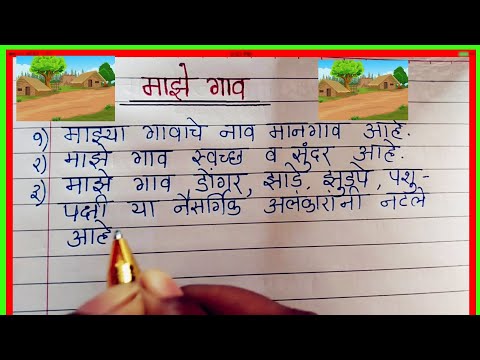 माझे गाव
१) माझ्या गावाचे नाव मानगाव आहे.
२) माझे गाव स्वच्छ व सुंदर आहे.
३) माझे गाव डोंगर, झाडे, झुडपे, पशु-
पक्षी या नैसर्गिक अलंकारांनी नटले
आहे